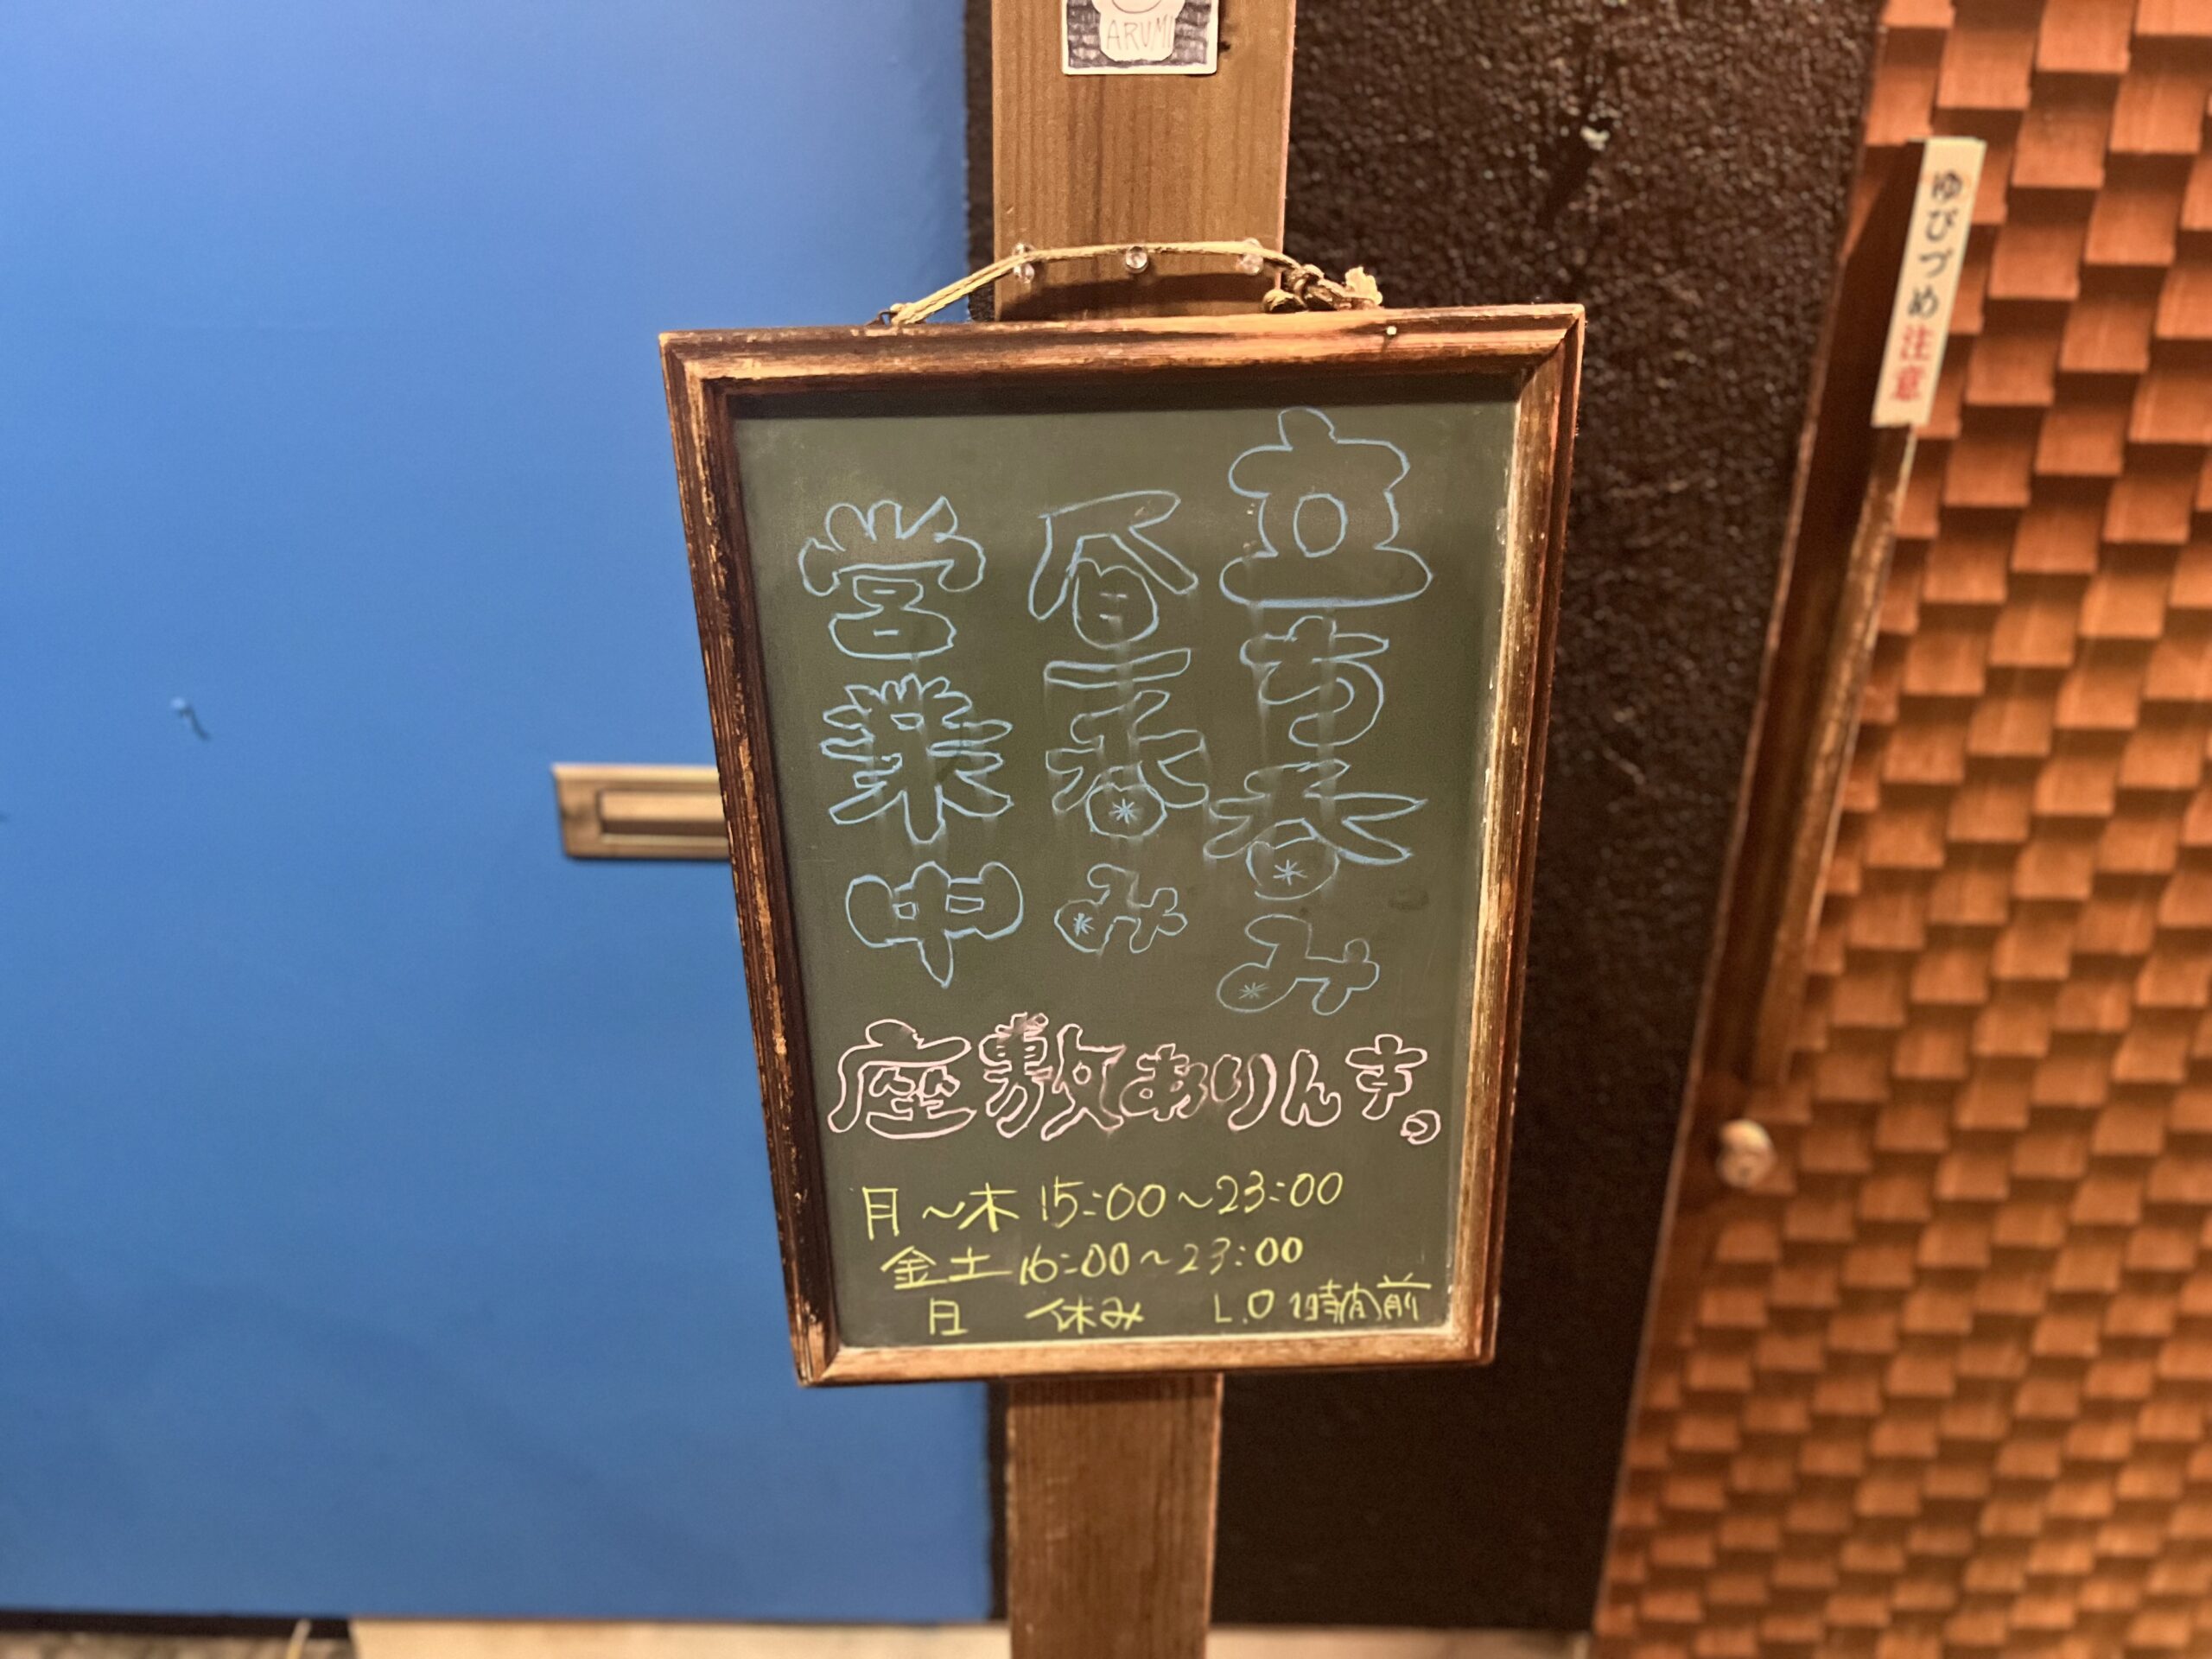 ARUMI
立ち呑み
昼呑み
営業中
座敷ありんす。
月〜木 15:00〜23:00
金土 16:00〜23:00
日 休み L.O 1時間前
ゆびづめ注意